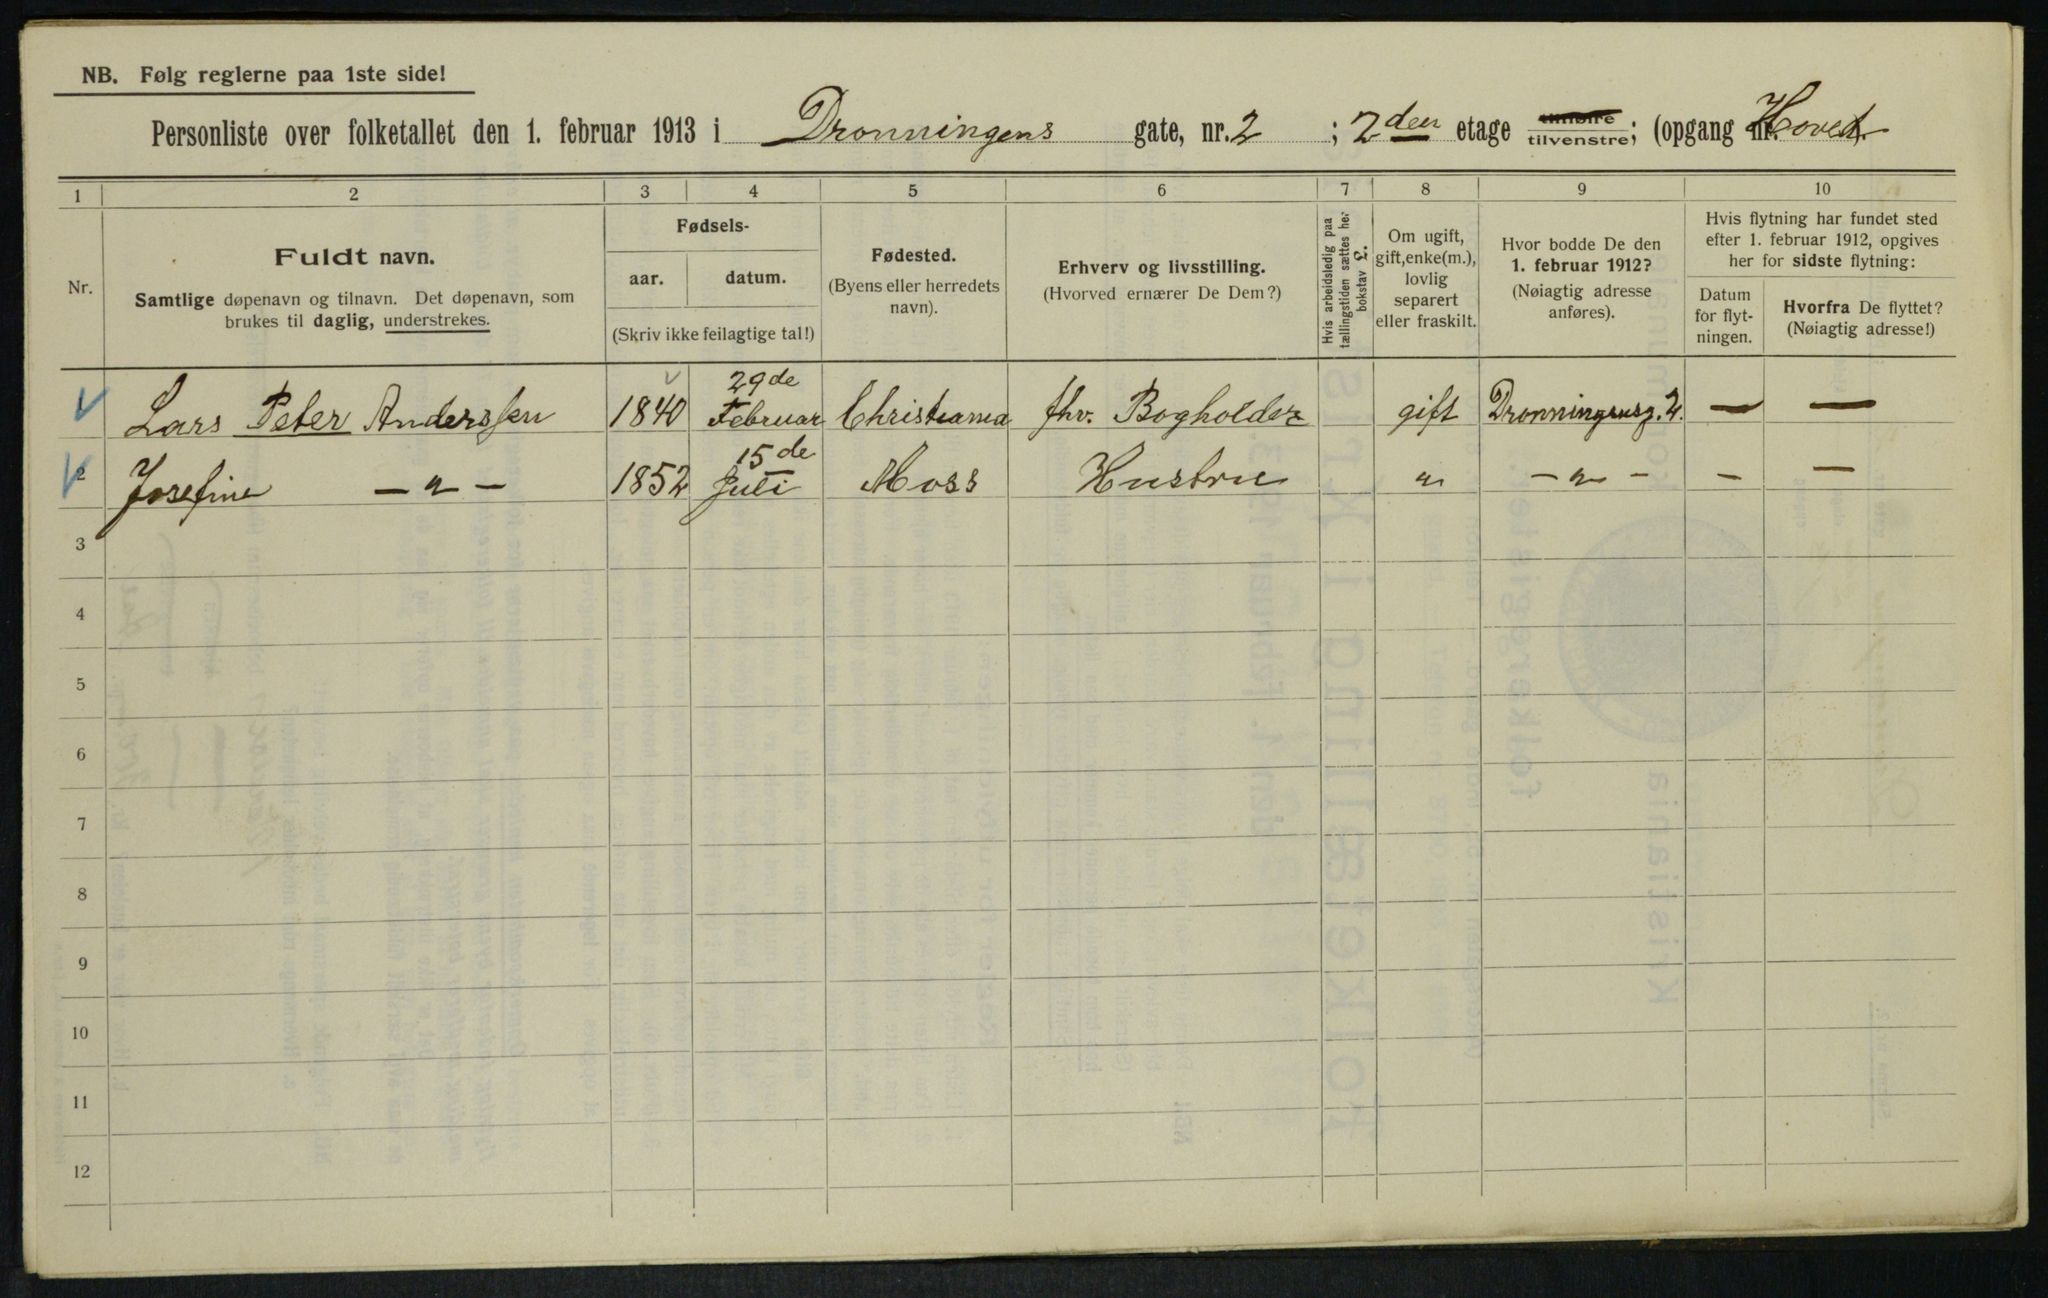 NB. Følg reglerne paa 1ste side!
Personliste over folketallet den 1. februar 1913 i Dronningens gate, nr. 2 ; 2den etage tilhøire tilvenstre; (opgang nr. Hoved.
1 2 3 4 5 6 7 8 9 10
Nr.
Fuldt navn.
Samtlige døpenavn og tilnavn. Det døpenavn, som
brukes til daglig, understrekes.
Fødsels-
aar. datum.
(Skriv ikke feilagtige tal!)
Fødested.
(Byens eller herredets
navn).
Erhverv og livsstilling.
(Hvorved ernærer De Dem?)
Hvis arbeidsledig paa
tællingstiden sættes her
bokstav L.
Om ugift,
gift, enke(m.),
lovlig
separert
eller fraskilt.
Hvor bodde De den
1. februar 1912?
(Nøiagtig adresse
anføres).
Hvis flytning har fundet sted
efter 1. februar 1912, opgives
her for sidste flytning:
Datum
for flyt-
ningen.
Hvorfra De flyttet?
(Nøiagtig adresse!)
1 Lars Peter Anderssen 1840 29de Februar Christiania fhv. Bogholder gift Dronningensg. 2. — —
2 Josefine — " — 1852 15de Juli Moss Hustru " — " — — —
3
4
5
6
7
8
9
10
11
12